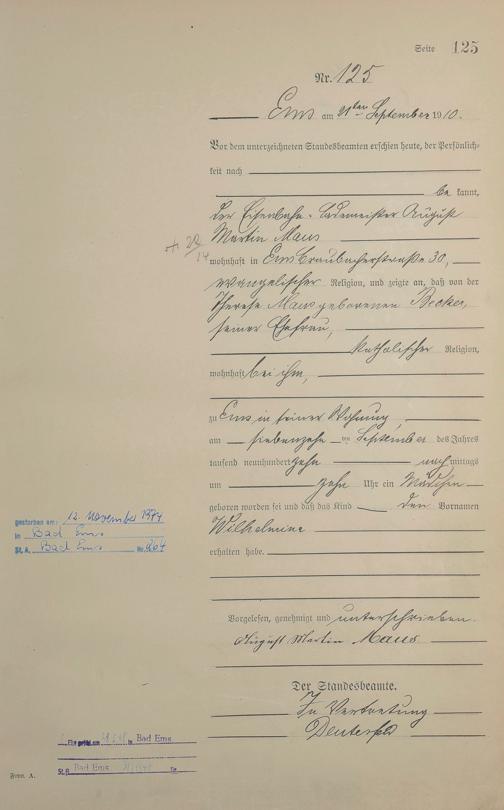 Seite 125
Nr. 125
Ems am 21ten September 1910.
Vor dem unterzeichneten Standesbeamten erschien heute, der Persönlich-
keit nach
be kannt,
der Eisenbahn-Lademeister August
Martin Maus
wohnhaft in Ems Braubacherstraße 30,
evangelischer Religion, und zeigte an, daß von der
Therese Maus geborenen Becker,
seiner Ehefrau,
katholischer Religion,
wohnhaft bei ihm,
zu Ems in seiner Wohnung,
am siebenzehn ten September des Jahres
tausend neunhundert zehn nach mittags
um zehn Uhr ein Mädchen
geboren worden sei und daß das Kind den Vornamen
Wilhelmine
erhalten habe.
gestorben am: 12. November 1977
in Bad Ems
St. A. Bad Ems Nr. 264
Vorgelesen, genehmigt und unterschrieben.
August Martin Maus
Der Standesbeamte.
In Vertretung
in Bad Ems
St. A. Bad Ems Nr.
Form. A.